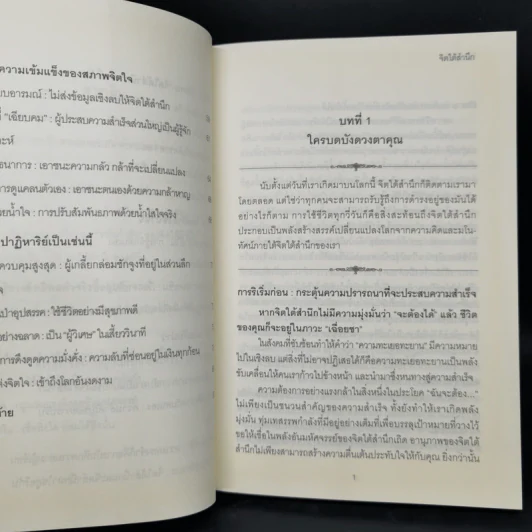 ความเข้มแข็งของสภาพจิตใจ
บอารมณ์ : ไม่ส่งข้อมูลเชิงลบให้จิตใต้สำนึก
"เฉียบคม" : ผู้ประสบความสำเร็จส่วนใหญ่เป็นผู้รู้จัก
ะห์
อนาการ : เอาชนะความกลัว กล้าที่จะเปลี่ยนแปลง
การดูแคลนตัวเอง : เอาชนะตนเองด้วยความกล้าหาญ
ยน้ำใจ : การปรับสัมพันธภาพด้วยน้ำใสใจจริง
ปาฏิหาริย์เป็นเช่นนี้
ควบคุมสูงสุด : ผู้เกลี้ยกล่อมชักจูงที่อยู่ในส่วนลึก
จ
ป๋าอุปสรรค : ใช้ชีวิตอย่างมีสุขภาพดี
อย่างฉลาด : เป็น "ผู้วิเศษ" ในเสี้ยววินาที
การดึงดูดความมั่งคั่ง : ความลับที่ซ่อนอยู่ในเงินทุกก้อน
ห่งจิตใจ : เข้าถึงโลกอันงดงาม
้าย
จิตใต้สำนึก
บทที่ 1
ใครบดบังดวงตาคุณ
นับตั้งแต่วันที่เราเกิดมาบนโลกนี้ จิตใต้สำนึกก็ติดตามเรามา
โดยตลอด แต่ใช่ว่าทุกคนจะสามารถรับรู้ถึงการดำรงอยู่ของมันได้
อย่างไรก็ตาม การใช้ชีวิตทุกวี่วันก็คือสิ่งสะท้อนถึงจิตใต้สำนึก
ประกอบเป็นพลังสร้างสรรค์เปลี่ยนแปลงโลกจากความคิดและมโน
ทัศน์ภายใต้จิตใต้สำนึกของเรา
การริเริ่มก่อน : กระตุ้นความปรารถนาที่จะประสบความสำเร็จ
หากจิตใต้สำนึกไม่มีความมุ่งมั่นว่า "จะต้องได้" แล้ว ชีวิต
ของคุณก็จะอยู่ในภาวะ "เฉื่อยชา"
ในสังคมที่ซับซ้อนทำให้คำว่า "ความทะเยอทะยาน" มีความหมาย
ไปในเชิงลบ แต่สิ่งที่ไม่อาจปฏิเสธได้ก็คือความทะเยอทะยานเป็นพลัง
ขับเคลื่อนให้คนเราก้าวไปข้างหน้า และนำมาซึ่งหนทางสู่ความสำเร็จ
ความต้องการอย่างแรงกล้าในสิ่งหนึ่งในประโยค "ฉันจะต้อง..."
ไม่เพียงเป็นชนวนสำคัญของความสำเร็จ ทั้งยังทำให้เราเกิดพลัง
มุ่งมั่น ทุ่มเทสรรพกำลังที่มีอยู่อย่างเต็มที่เพื่อบรรลุเป้าหมายที่วางไว้
ขอให้เชื่อในพลังอันมหัศจรรย์ของจิตใต้สำนึกเถิด อานุภาพของจิตใต้
สำนึกไม่เพียงสามารถสร้างความตื่นเต้นประทับใจให้กับคุณ ยิ่งกว่านั้น
1